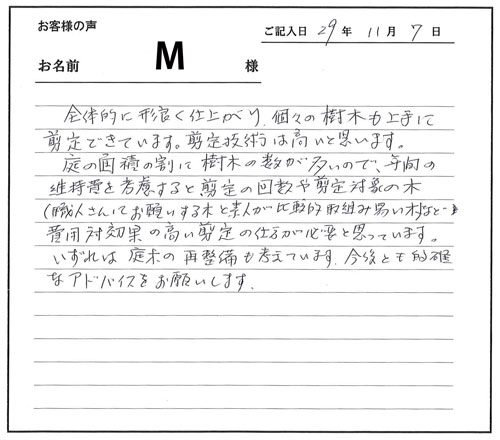 お客様の声
ご記入日 29年 11月 7日
お名前 M 様
全体的に形良く仕上がり、個々の樹木も上手に
剪定できています。剪定技術は高いと思います。
庭の面積の割に樹木の数が多いので、年間の
維持費を考慮すると剪定の回数や剪定対象の木
(職人さんにお願いする木と素人が比較的取組み易い木)など
費用対効果の高い剪定の仕方が必要と思っています。
いずれは庭木の再整備も考えています。今後とも的確
なアドバイスをお願いします。